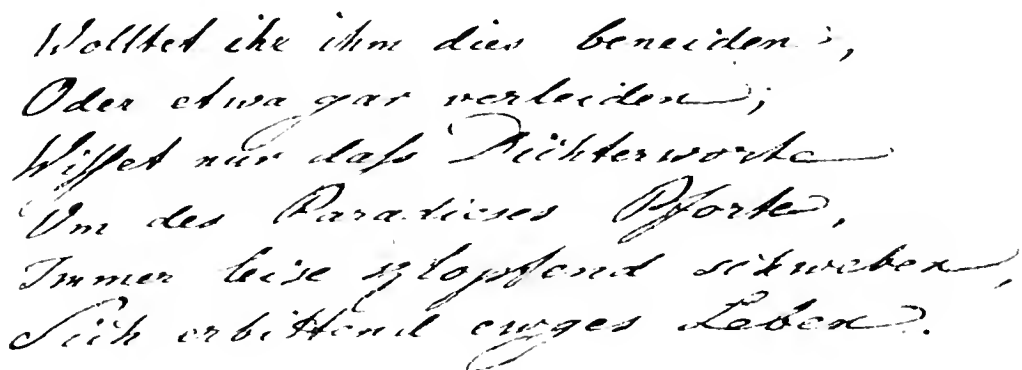 Wolltet ihr ihm dies beneiden,
Oder etwa gar verleiden;
Wisset nur daſs Dichterworte
Um des Paradieses Pforte,
Immer leise klopfend schweben,
Sich erbittend ewges Leben.